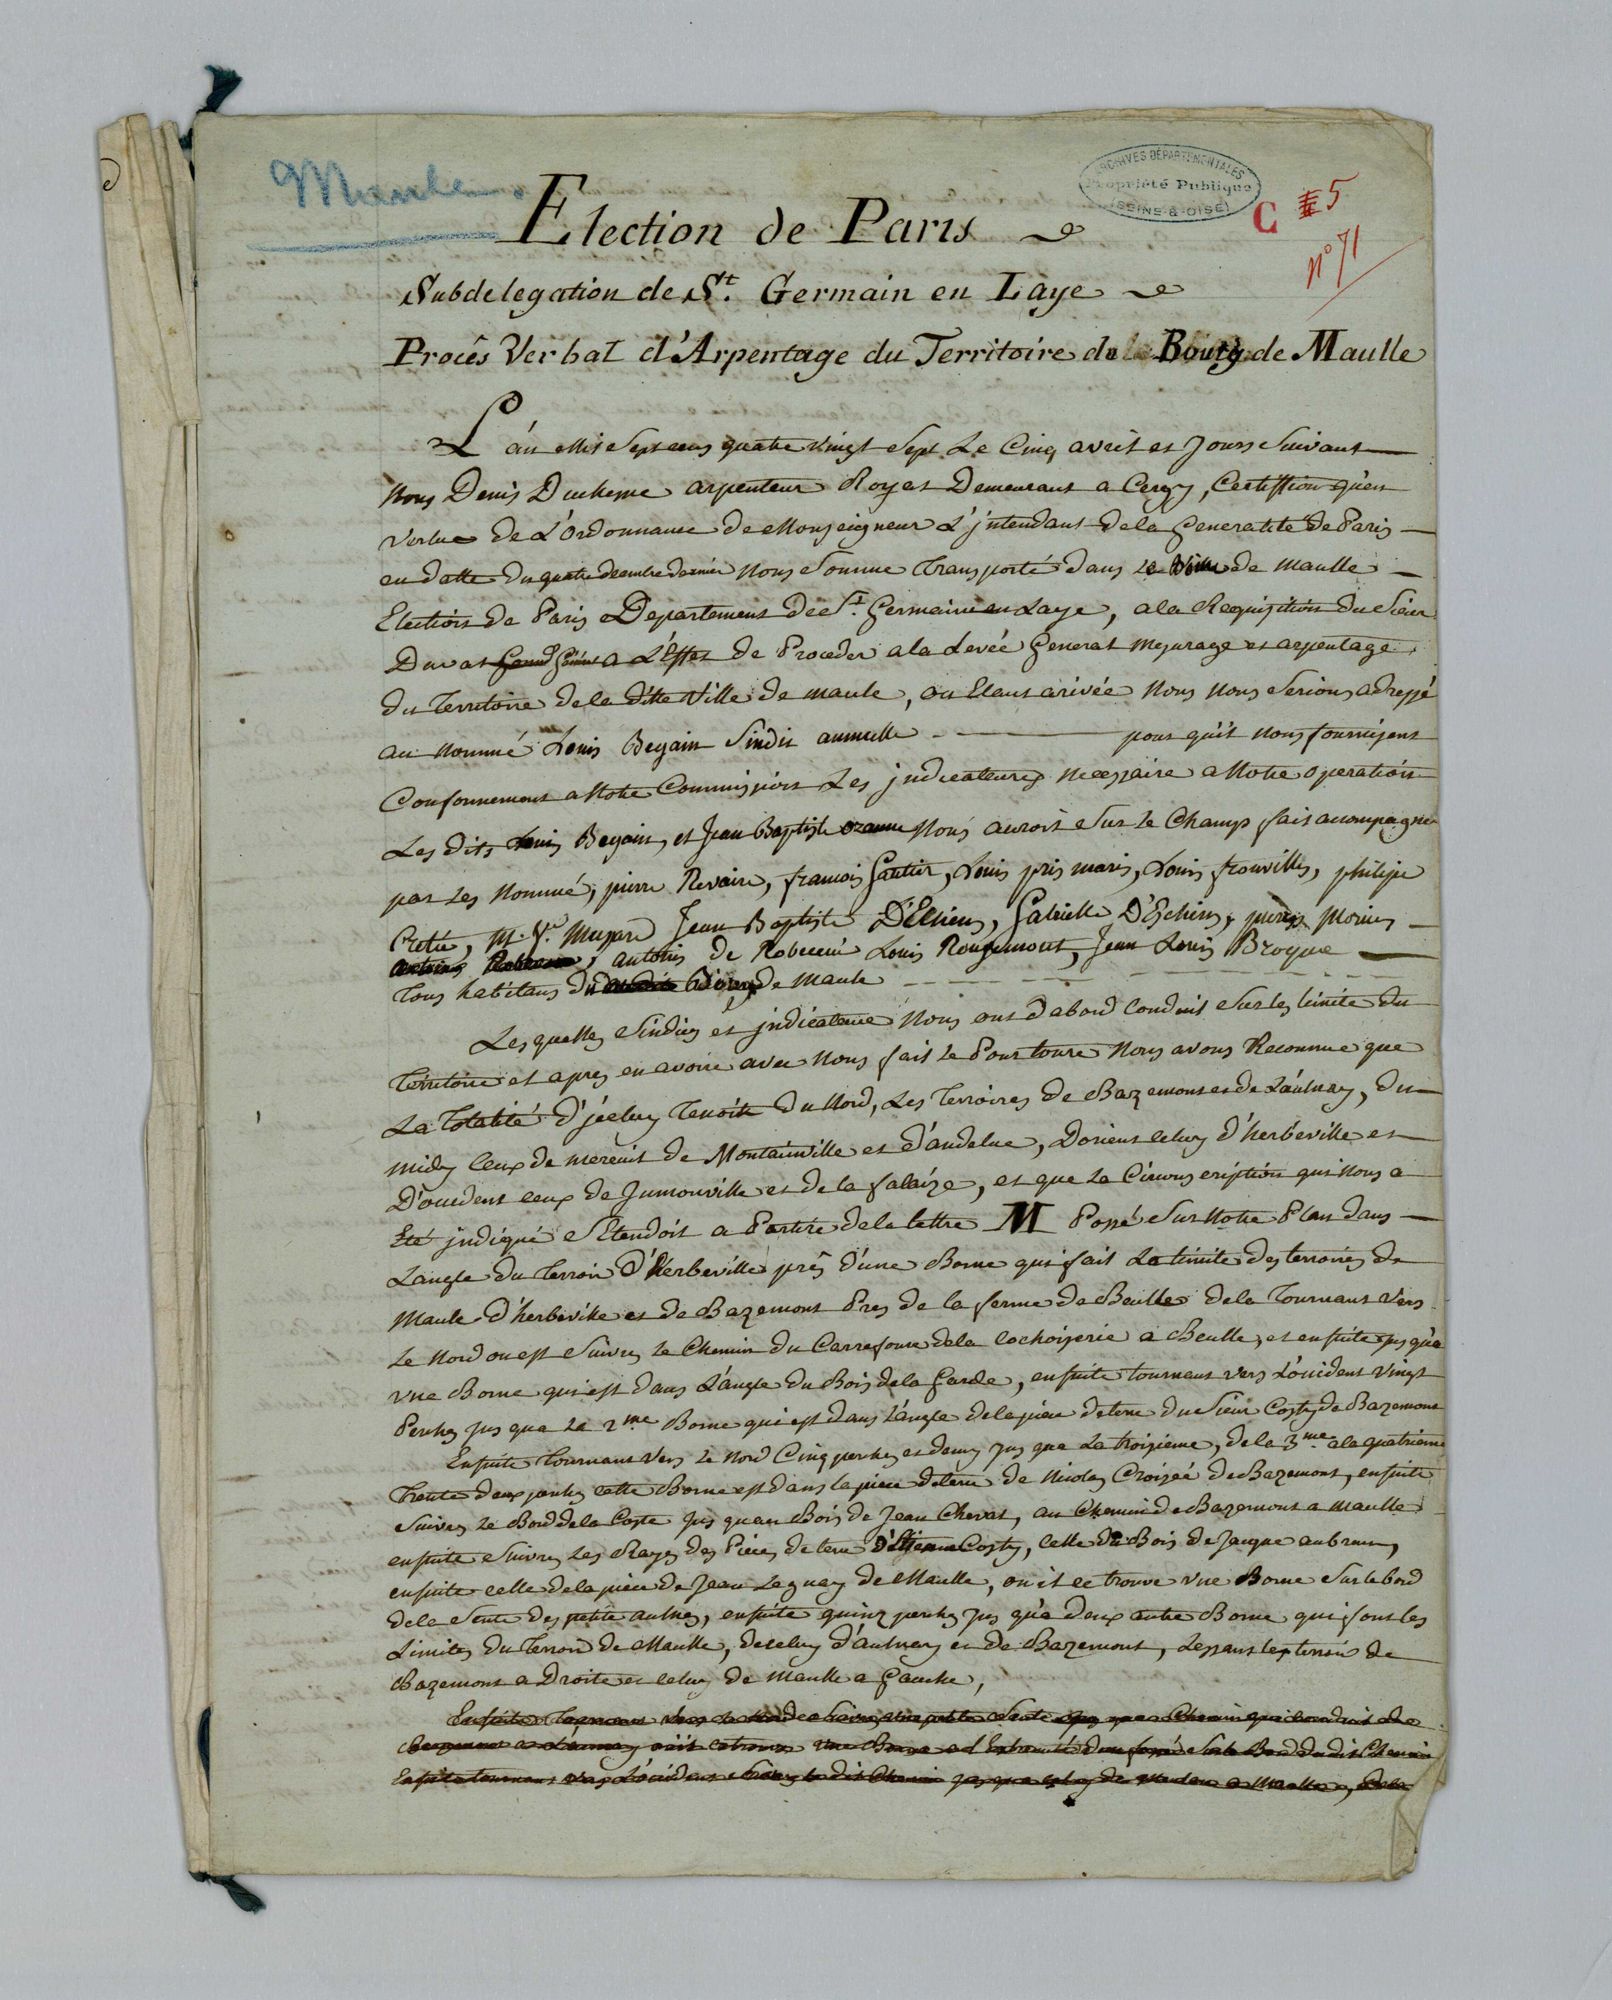 Maule.
ARCHIVES DÉPARTEMENTALES
Propriété Publique
(SEINE-&-OISE)
C 5
n° 71
Election de Paris
Subdelegation de St. Germain en Laye
Procês Verbal d'Arpentage du Territoire du Bourg de Maulle
L'an Mil Sept cens quatre vingt Sept Le Cinq avril et Jours Suivant
Nous Denis Duchesne arpenteur Royal Demeurant a Cergy, Certiffion qu'en
Vertue de L'Ordonnance de Monseigneur L'jntendant de la Generalité de Paris
en datte du quatre decembre dernier Nous Somme Transporté dans de Maulle
Election de Paris Departement de St. Germain en Laye, a la Requisition du Sieur
Duval a L'Effet de Proceder a la Levée General Mesurage et arpentage
du Territoire de la ditte Ville de Maule, ou Etant arivée Nous Nous Serions adressé
au Nommé Louis Begain Sindic annuelle pour qu'il Nous fournissent
Conformement a Notre Commission Les jndicateurs Necessaire a Notre Operation
Les dits Louis Begain, et Jean Baptiste ozanne Nous auroit Sur le Champ fait accompagner
par Les Nommé, pierre Revaire, francois Gautier, Louis pris maris, Louis frouville, philipe
Cretté, M. Musard Jean Baptiste D'Ethiens, Gabrielle D'Eschiens, Morin
antoine de Robecené Louis Rougemont, Jean Louis Brogue
Tous habitans du Bourg de Maule
Lesquelles Sindics et jndicateurs Nous ont d'abord Conduit Sur les limite du
Territoire et apres en avoire avec Nous fait le Pourtoure Nous avons Reconnue que
La Totalité d'jceluy Tenoit du Nord, Les Terroires de Bazemont et de L'aulnay, du
Midy Ceux de Mareuil de Montainville et d'andelue, Dorient celuy d'herbeville et
D'occident ceux de Jumonville et de la falaize, et que La Circonscription qui Nous a
Eté jndiqué S'Etendoit a Partire de la lettre M Possé Sur Notre Plan dans
L'angle du Terroir d'Herbeville prês d'une Borne qui fait La limite des terroires de
Maule d'herbeville et de Bazemont Pres de la ferme de Beulle de la Tournant Vers
Le Nord ouest Suivre le Chemin du Carrefoure de la Cochoiserie a Beulle, et ensuite jusqu'a
une Borne qui est dans L'angle du Bois de la Garde, ensuite tournant vers L'occident Vingt
Perches jusqua La 2me Borne qui est dans L'angle de la piece de terre du Sieur Costy de Bazemont
Ensuite Tournant Vers le Nord Cinq perches et demy jusqua La troisieme, de la 3me a la quatrieme
Trente deux perches cette Borne est dans la piece de terre de Nicolas Croizée de Bazemont, ensuite
Suivre le Bord de la Coste jusquau Bois de Jean Cheval, au Chemin de Bazemont a Maulle
ensuite Suivre Les Rayes des Pieces de terre d'Etienne Costy, Celle du Bois de Jacque aubrun,
ensuite celle de la piece de Jean Leguay de Maulle, ou il ce trouve une Borne Sur le bord
de la Sente des petits aulnes, ensuite quinz perches jusqu'a deux autre Borne qui font les
Limites du Terroir de Maulle, de celuy d'aulnay et de Bazemont, Laissant les terroir de
Bazemont a Droite et celuy de Maulle a Gauche,